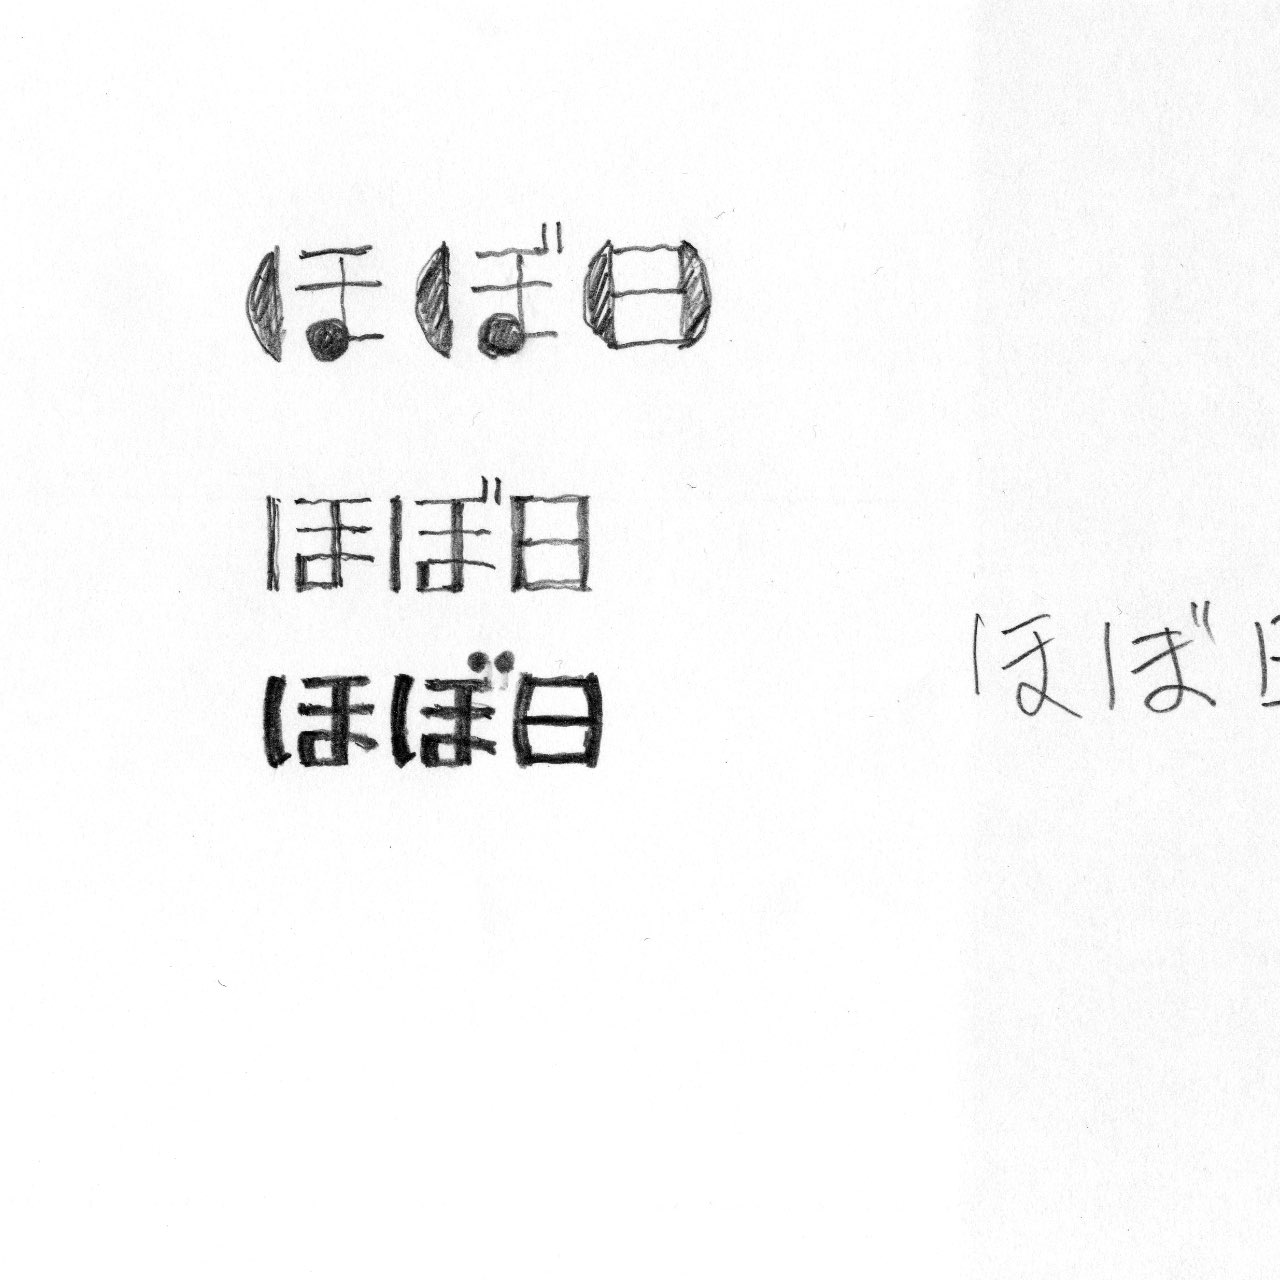 ほぼ日
ほぼ日
ほぼ日
ほぼ日